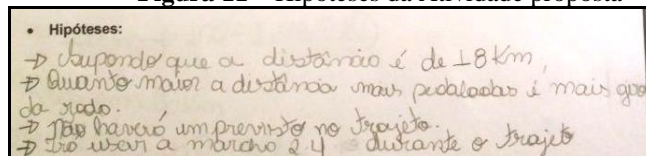 Figura 22 – Hipóteses da Atividade proposta
• Hipóteses:
→ Supondo que a distância é de 18 Km,
→ Quanto maior a distância mais pedaladas i mais giro
da roda.
→ Não haverá um previsto no trajeto.
→ Irá usar a marcha 24 durante o trajeto